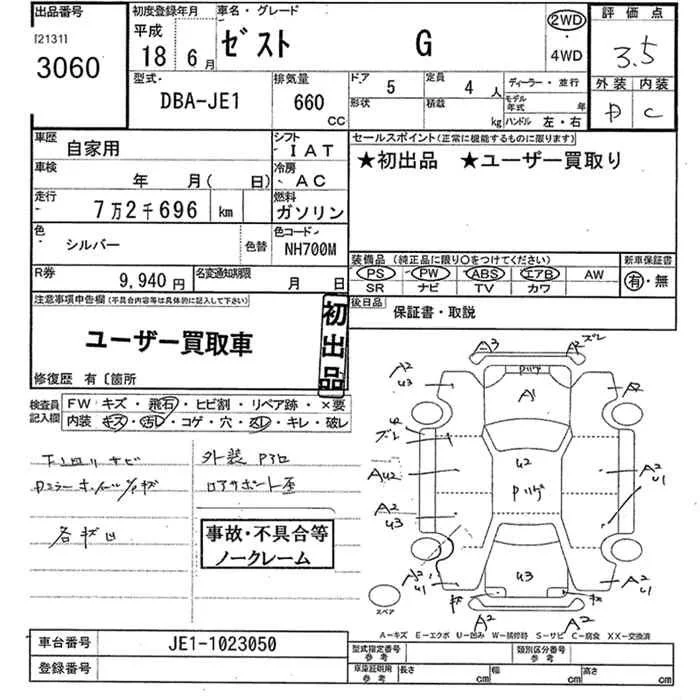 出品番号
[2131]
3060
初度登録年月
平成
18 6月
車名・グレード
ゼスト G
2WD
・
4WD
評価点
3.5
外装 内装
D C
型式
DBA-JE1
排気量
660
CC
ドア 5
定員 4 人
形状
積載 kg
ディーラー・並行
モデル年式 年
ハンドル 左・右
車歴 自家用
シフト IAT
車検 年 月( 日)
冷房 AC
走行 7万2千696 km
燃料 ガソリン
色 シルバー 色替
色コード NH700M
R券 9,940 円
名変通知期限 月 日
セールスポイント(正常に機能するものに限ります)
★初出品 ★ユーザー買取り
装備品(純正品に限り○をつけてください)
PS PW ABS エアB AW
SR ナビ TV カワ
新車保証書
有・無
後日品
保証書・取説
注意事項申告欄(不具合内容等は具体的に記入して下さい)
ユーザー買取車
初出品
修復歴 有〔箇所
検査員記入欄
FW キズ・飛石・ヒビ割・リペア跡・×要
内装 キズ・汚レ・コゲ・穴・スレ・キレ・破レ
外装
各キズ凹
事故・不具合等
ノークレーム
A3 A2 ズレ
A2
U3
A1
A2
ズレ
U2
AU2
A2
U1
A2
U3
A2
U1
U3
A2
U1
A2 A2
スペア
A−キズ E−エクボ U−凹み W−補修跡 S−サビ C−腐食 XX−交換済
車台番号 JE1-1023050
登録番号
型式指定番号
参考
類別区分番号
参考
車庫証明用
参考
長さ cm 幅 cm 高さ cm